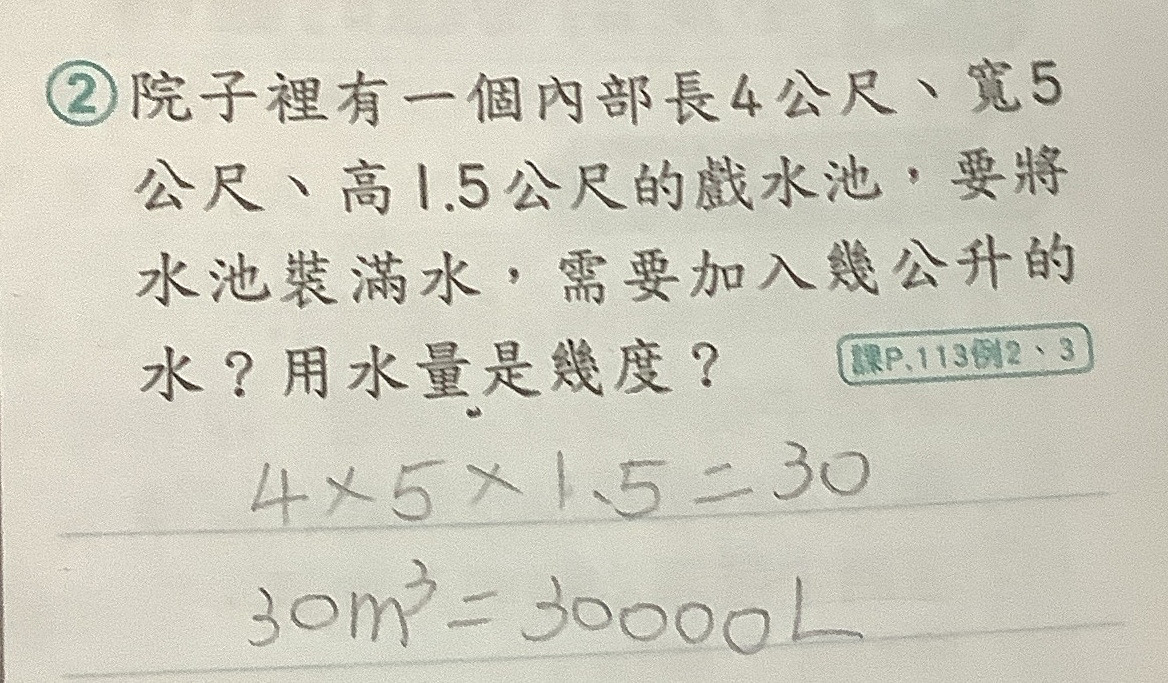 ②院子裡有一個內部長4公尺、寬5
公尺、高1.5公尺的戲水池，要將
水池裝滿水，需要加入幾公升的
水？用水量是幾度？ 課P.113例2、3
4×5×1.5=30
30m³=30000L